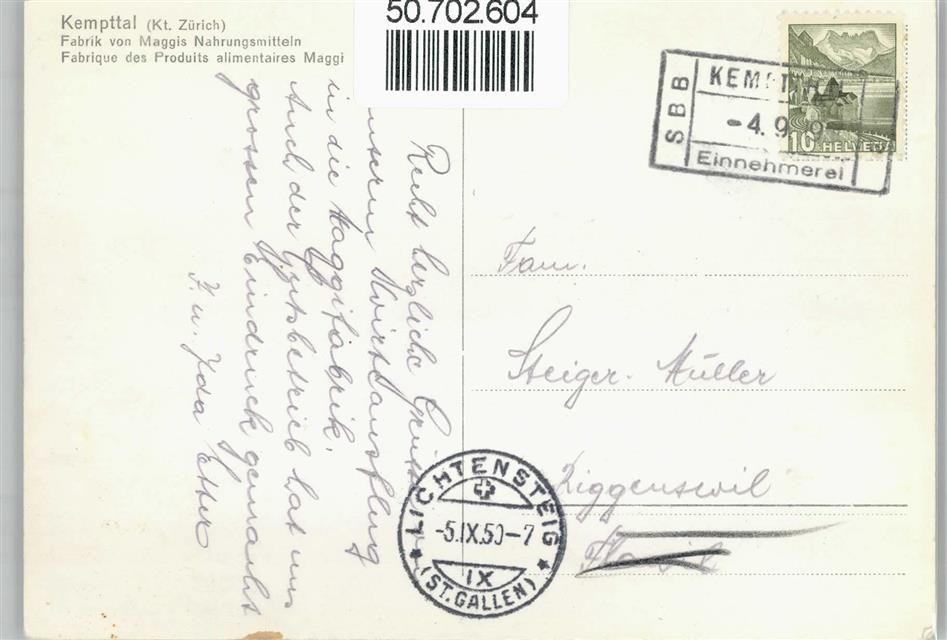 50.702.604
Kempttal (Kt. Zürich)
Fabrik von Maggis Nahrungsmitteln
Fabrique des Produits alimentaires Maggi
Recht herzliche Grüsse
unserem
in die Maggifabrik.
Auch der Gutsbetrieb hat uns
grossen Eindruck gemacht
u. Ida Etter
SBB
KEMPT
-4. 9.
Einnehmerei
10 HELVETIA
Fam.
Steiger-Müller
Riggenswil
Flawil
LICHTENSTEIG
-5.IX.50-7
IX
(ST. GALLEN)